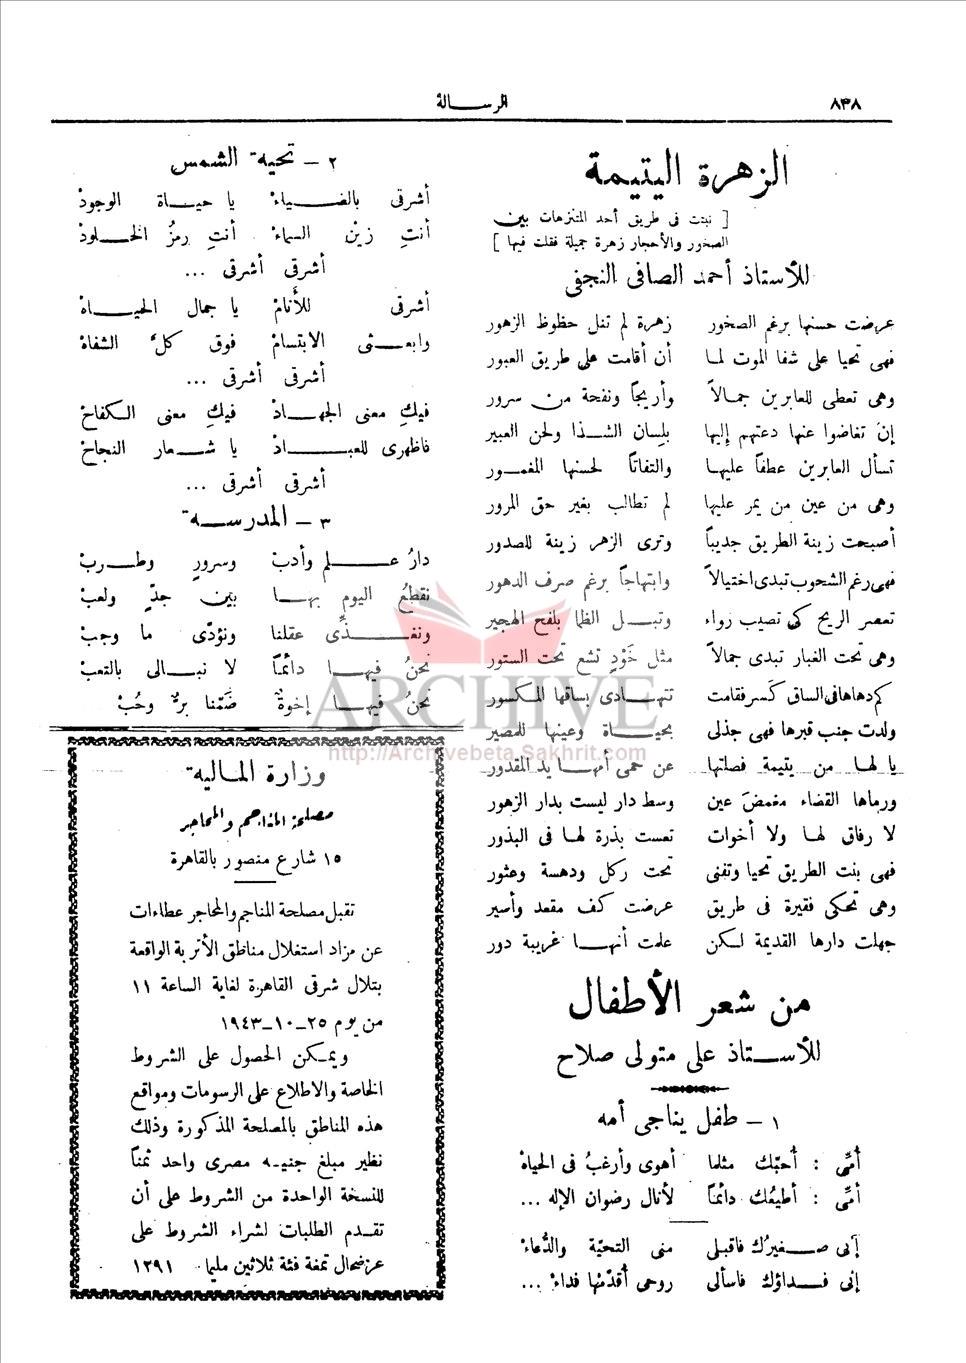 ٨٣٨
الرسالة
الزهرة اليتيمة
[ نبتت فى طريق أحد المتنزهات بين
الصخور والأحجار زهرة جميلة فقلت فيها ]
للأستاذ أحمد الصافى النجفى
عرضت حسنها برغم الصخور زهرة لم تنل حظوظ الزهور
فهى تحيا على شفا الموت لما أن أقامت على طريق العبور
وهى تعطى للعابرين جمالاً وأريجاً ونفحة من سرور
إن تغاضوا عنها دعتهم إليها بلسان الشذا ولحن العبير
تسأل العابرين عطفاً عليها والتفاتاً لحسنها المغمور
وهى من عين من يمر عليها لم تطالب بغير حق المرور
أصبحت زينة الطريق جديباً وترى الزهر زينة للصدور
فهى رغم الشحوب تبدى اختيالاً وابتهاجاً برغم صرف الدهور
تعصر الريح كى تصيب رواء وتبل الظما بلفح الهجير
وهى تحت الغبار تبدى جمالاً مثل خَوْدٍ تشع تحت الستور
كم دهاها فى الساق كسر فقامت تتهادى بساقها المكسور
ولدت جنب قبرها فهى جذلى بحياة وعينها للمصير
يا لها من يتيمة فصلتها عن حمى أمها يد المقدور
ورماها القضاء مغمض عين وسط دار ليست بدار الزهور
لا رفاق لها ولا أخوات تعست بذرة لها فى البذور
فهى بنت الطريق تحيا وتفنى تحت ركل ودهسة وعثور
وهى تحكى فقيرة فى طريق عرضت كف مقعد وأسير
جهلت دارها القديمة لكن علمت أنها غريبة دور
من شعر الأطفال
للأستاذ على متولى صلاح
١ - طفل يناجى أمه
أمّى : أُحبّك مثلما أهوى وأرغبُ فى الحياهْ
أمّى : أطيعُك دائمًا لأنال رضوان الإله ...
إنى صغيرُك فاقبلى منى التحيّة والدُّعاءْ
إنى فداؤك فاسألى روحى أُقدّمْها فداءْ ...
٢ - تحية الشمس
أشرقى بالضياءْ يا حياة الوجودْ
أنتِ زيْن السماءْ أنتِ رمزُ الخلودْ
أشرقى أشرقى ...
أشرقى للأنامْ يا جمال الحياهْ
وابعثى الابتسامْ فوق كلّ الشفاهْ
أشرقى أشرقى ...
فيكِ معنى الجهادْ فيكِ معنى الكفاحْ
فاظهرى للعبادْ يا شعار النجاحْ
أشرقى أشرقى ...
٣ - المدرسة
دارُ علم وأدبْ وسرورٍ وطربْ
نقطعُ اليوم بها بين جدٍّ ولعبْ
ونغذّى عقلنا ونؤدّى ما وجبْ
نحنُ فيها دائمًا لا نبالى بالتعبْ
نحنُ فيها إخوةٌ ضمّنا برٌّ وحُبْ
وزارة المالية
مصلحة المناجم والمحاجر
١٥ شارع منصور بالقاهرة
تقبل مصلحة المناجم والمحاجر عطاءات
عن مزاد استغلال مناطق الأتربة الواقعة
بتلال شرقى القاهرة لغاية الساعة ١١
من يوم ٢٥-١٠-١٩٤٣
ويمكن الحصول على الشروط
الخاصة والاطلاع على الرسومات ومواقع
هذه المناطق بالمصلحة المذكورة وذلك
نظير مبلغ جنيه مصرى واحد ثمنًا
للنسخة الواحدة من الشروط على أن
تقدم الطلبات لشراء الشروط على
عرضحال تمغة فئة ثلاثين مليما ١٣٩١
ARCHIVE
http://Archivebeta.Sakhrit.com